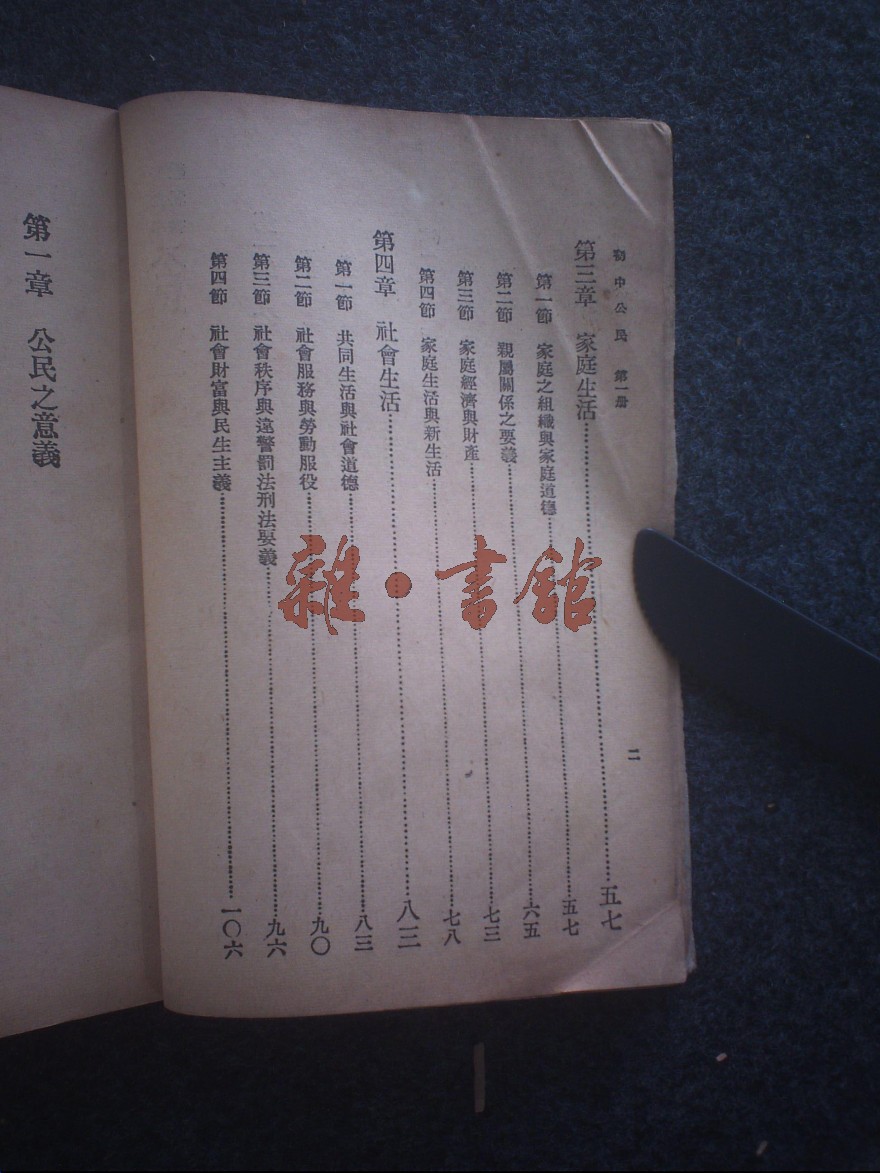 初中公民 第一册
二
第三章 家庭生活……五七
第一節 家庭之組織與家庭道德……五七
第二節 親屬關係之要義……六五
第三節 家庭經濟與財產……七三
第四節 家庭生活與新生活……七八
第四章 社會生活……八三
第一節 共同生活與社會道德……八三
第二節 社會服務與勞動服役……九〇
第三節 社會秩序與違警罰法刑法要義……九六
第四節 社會財富與民生主義……一〇六
第一章 公民之意義
雜·書館